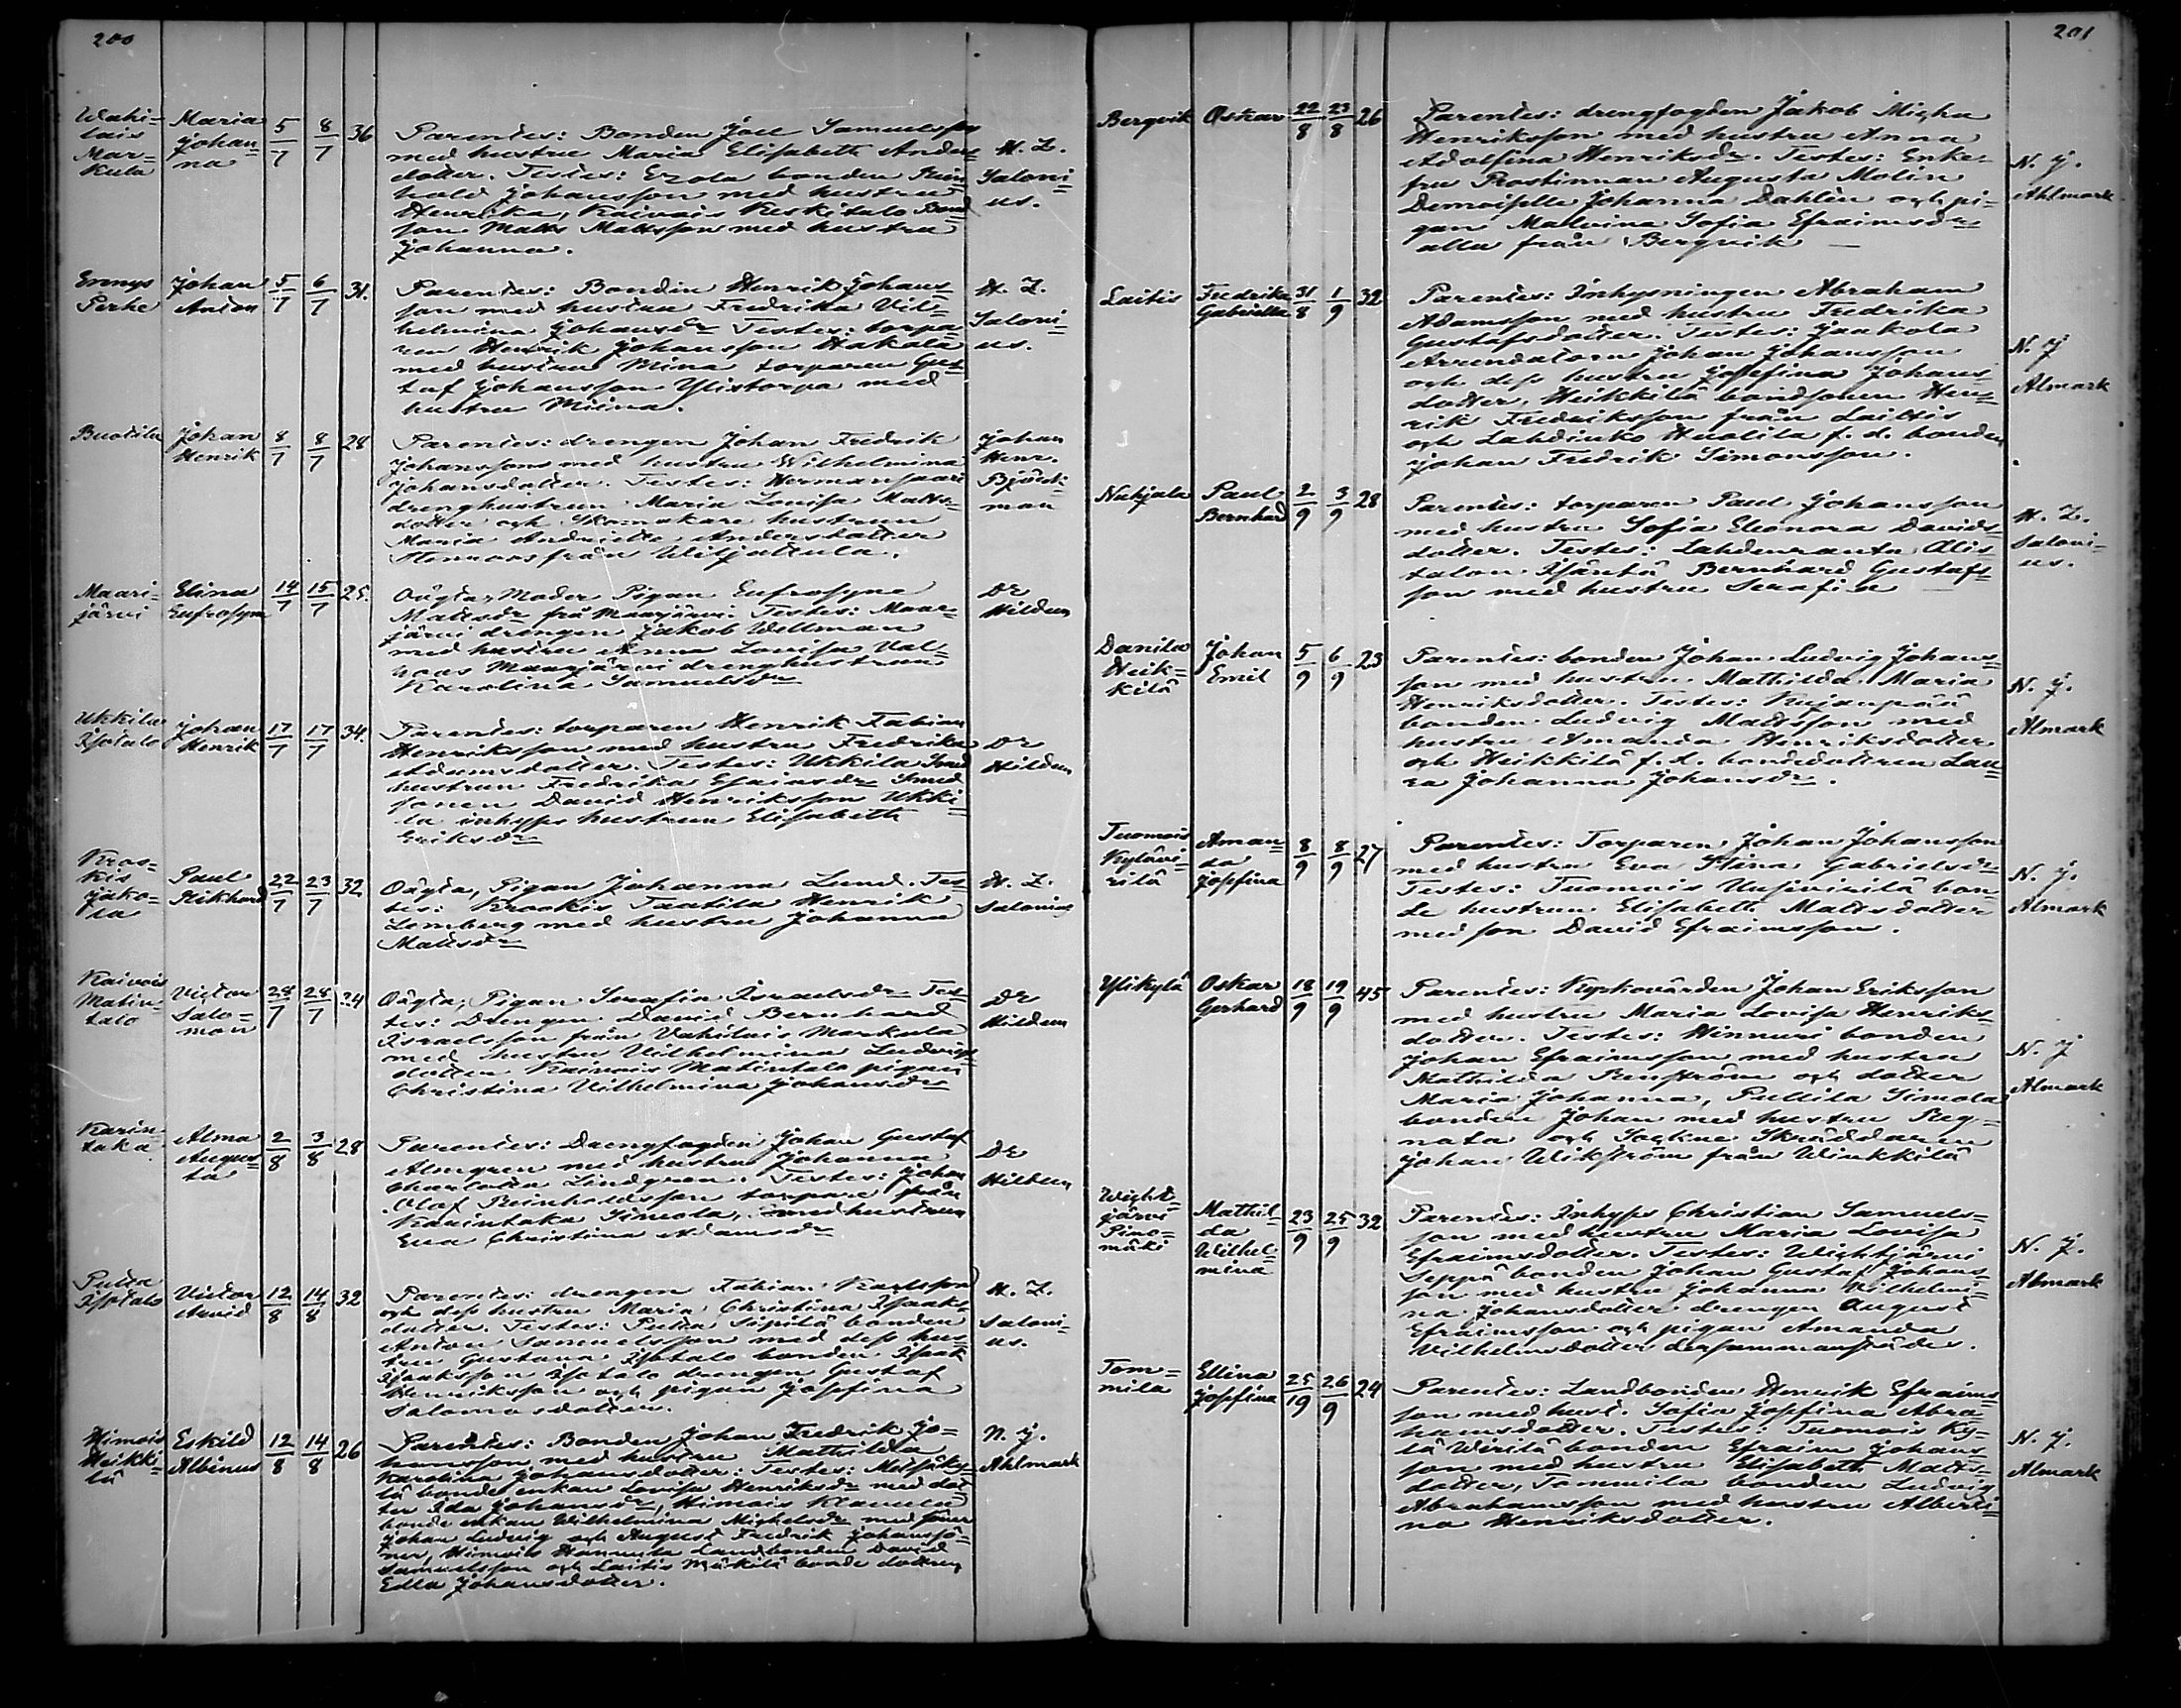 200
Wahi-
lais
Mar-
kula
Maria
Johan-
na
5/7 8/7 36
Parentes: Bonden Joel Samuelsson
med hustru Maria Elisabeth Anders-
dotter. Testes: Erola bonden Rein-
hold Johansson med hustru
Henrika, Kaivois Keskitalo Bond
son Matts Mattsson med hustru
Johanna.
H. L.
Saloni-
us.
Ermys
Perhe
Johan
Anton
5/7 6/7 31.
Parentes: Bonden Henrik Johans-
son med hustru Fredrika Vil-
helmina Johansdr Testes: torpa-
ren Henrik Johansson Hakala
med hustru Mina torparen Gus-
taf Johansson Ylistorpa med
hustru Miina.
H. L.
Saloni-
us.
Buotila
Johan
Henrik
8/7 8/7 28
Parentes: drengen Johan Fredrik
Johanssons med hustru Wilhelmina
Johansdotter. Testes: Hermansaari
drenghustrun Maria Lovisa Matts-
dotter och Skomakare hustrun
Maria Andriette Andersdotter
från Viljattula.
Johan
Henr.
Björk-
man
Maari-
järvi
Elina
Eufrosyne
14/7 15/7 25.
Oägta, Moder Pigan Eufrosyne
Mattsdr från Maarjärvi Testes: Maar-
järvi drengen Jakob Wellman
med hustru Anna Lovisa Val-
roos Maarjärvi drenghustrun
Karolina Samuelsdr
Dr
Hilden
Ukkila
Isotalo
Johan
Henrik
17/7 17/7 34.
Parentes: torparen Henrik Fabian
Henriksson med hustru Fredrika
Adamsdotter. Testes: Ukkila Smed
hustrun Fredrika Esaiasdr Smed
sonen David Henriksson Ukki-
la inhyss hustrun Elisabeth
Eriksdr
Dr
Hilden
Kros-
kis
Jako-
la
Paul
Rikhard
22/7 23/7 32
Oägta, Pigan Johanna Lund. Tes-
tes: Krookis Taatila Henrik
Lemberg med hustru Johanna
Mattsdr
H. L.
Salonius
Kaivois
Matin-
talo
Victor
Salo-
mon
28/7 28/7 24
Oägta, Pigan Serafia Israelsdr Tes-
tes: Drengen David Bernhard
Israelsson från Vahilais Markula
med hustru Vilhelmina Ludvigs-
dotter Kaivois Matintalo pigan
Christina Vilhelmina Johansdr
Dr
Hilden
Karin-
taka
Alma
Augus-
ta
2/8 3/8 28
Parentes: Drengfogden Johan Gustaf
Almgren med hustru Johanna
Charlotta Lindgren. Testes: Johan
Olof Reinholdsson torpare från
Kaarintaka Simola, med hustrun
Eva Christina Adamsdr
Dr
Hilden
Putta
Isotalo
Victor
Arvid
12/8 14/8 32
Parentes: drengen Fabian Karlsson
och dess hustru Maria Christina Isaaks-
dotter. Testes: Putta Sipilä bonden
Anton Samuelsson med dess hus-
tru Gustava Isotalo bonden Isaak
Isaaksson Isotalo drengen Gustaf
Henriksson och pigan Josefina
Salomosdotter.
H. L.
Saloni-
us.
Himois
Heikki-
lä
Eskild
Albinus
12/8 14/8 26
Parentes: Bonden Johan Fredrik Jo-
hansson med hustru Mathilda
Karolina Johansdotter: Testes:
lä bonde enkan Lovisa Henriksdr med dot-
ter Ida Johansdr, Himois Klaunela
bonde enkan Wilhelmina Michelsdr med söner
Johan Ludvig och August Fredrik Johanssö-
ner, Himois Hannula Landbonden David
Samuelsson och Laitis Mäkilä bonde dottren
Edla Johansdotter.
N. J.
Ahlmark
201
Bergvik
Oskar
22/8 23/8 26
Parentes: drengfogden Jakob Micha
Henriksson med hustru Anna
Adolfina Henriksdr. Testes: Enke-
fru Prostinnan Augusta Molin
Demoiselle Johanna Dahlén och pi-
gan Malvina Sofia Efraimsdr
alla från Bergvik —
N. J.
Ahlmark
Laitis
Fredrika
Gabriella
31/8 1/9 32
Parentes: Inhysningen Abraham
Adamsson med hustru Fredrika
Gustafsdotter. Testes: Jaakola
Arrendatorn Johan Johansson
och dess hustru Josefina Johans-
dotter, Heikkilä bondsonen Hen-
rik Fredriksson från Laittis
och Lahdinko Huolila f. d. bonden
Johan Fredrik Simonsson.
N. J
Almark
Nuhjala
Paul
Bernhard
2/9 3/9 28
Parentes: torparen Paul Johansson
med hustru Sofia Eleonora Davids-
dotter. Testes: Lahdenranta Alis
talon Isäntä Bernhard Gustafs-
son med hustru Serafia —
H. L.
Saloni-
us.
Danila
Heik-
kilä
Johan
Emil
5/9 6/9 23
Parentes: bonden Johan Ludvig Johans-
son med hustru Mathilda Maria
Henriksdotter. Testes: Kujanpää
bonden Ludvig Mattsson med
hustru Amanda Henriksdotter
och Heikkilä f. d. bondedottren Lau-
ra Johanna Johansdr.
N. J.
Almark
Tuomois
Kylävi-
rilä
Aman-
da
Josefina
8/9 8/9 27
Parentes: Torparen Johan Johansson
med hustru Eva Stina Gabrielsdr
Testes: Tuomois Uusivirilä bon-
de hustrun Elisabeth Mattsdotter
med son David Efraimsson.
N. J.
Almark
Ylikylä
Oskar
Gerhard
18/9 19/9 45
Parentes: Kyrkovärden Johan Eriksson
med hustru Maria Lovisa Henriks-
dotter. Testes: Hinnusi bonden
Johan Efraimsson med hustru
Mathilda Renström och dotter
Maria Johanna, Pullila Simola
bonden Johan med hustru Reg-
nata och Sockne Skräddaren
Johan Wikström från Winkkilä
N. J
Almark
Wight-
järvi
Pino-
mäki
Mathil-
da
Wilhel-
mina
23/9 25/9 32
Parentes: Inhyss Christian Samuels-
son med hustru Maria Lovisa
Efraimsdotter. Testes: Wightjärvi
Seppä bonden Johan Gustaf Johans-
son med hustru Johanna Vilhelmi-
na Johansdotter drengen August
Efraimsson och pigan Amanda
Vilhelmsdotter dersammanstädes.
N. J.
Almark
Tom-
mila
Ellina
Josefina
25/19 26/9 24
Parentes: Landbonden Henrik Efraims-
son med hust. Sofia Josefina Abra-
hamsdotter. Testes: Tuomois Ky-
lä Wirilä bonden Efraim Johans-
son med hustru Elisabeth Matts-
dotter, Tommila bonden Ludvig
Abrahamsson med hustru Alberti-
na Henriksdotter.
N. J.
Almark